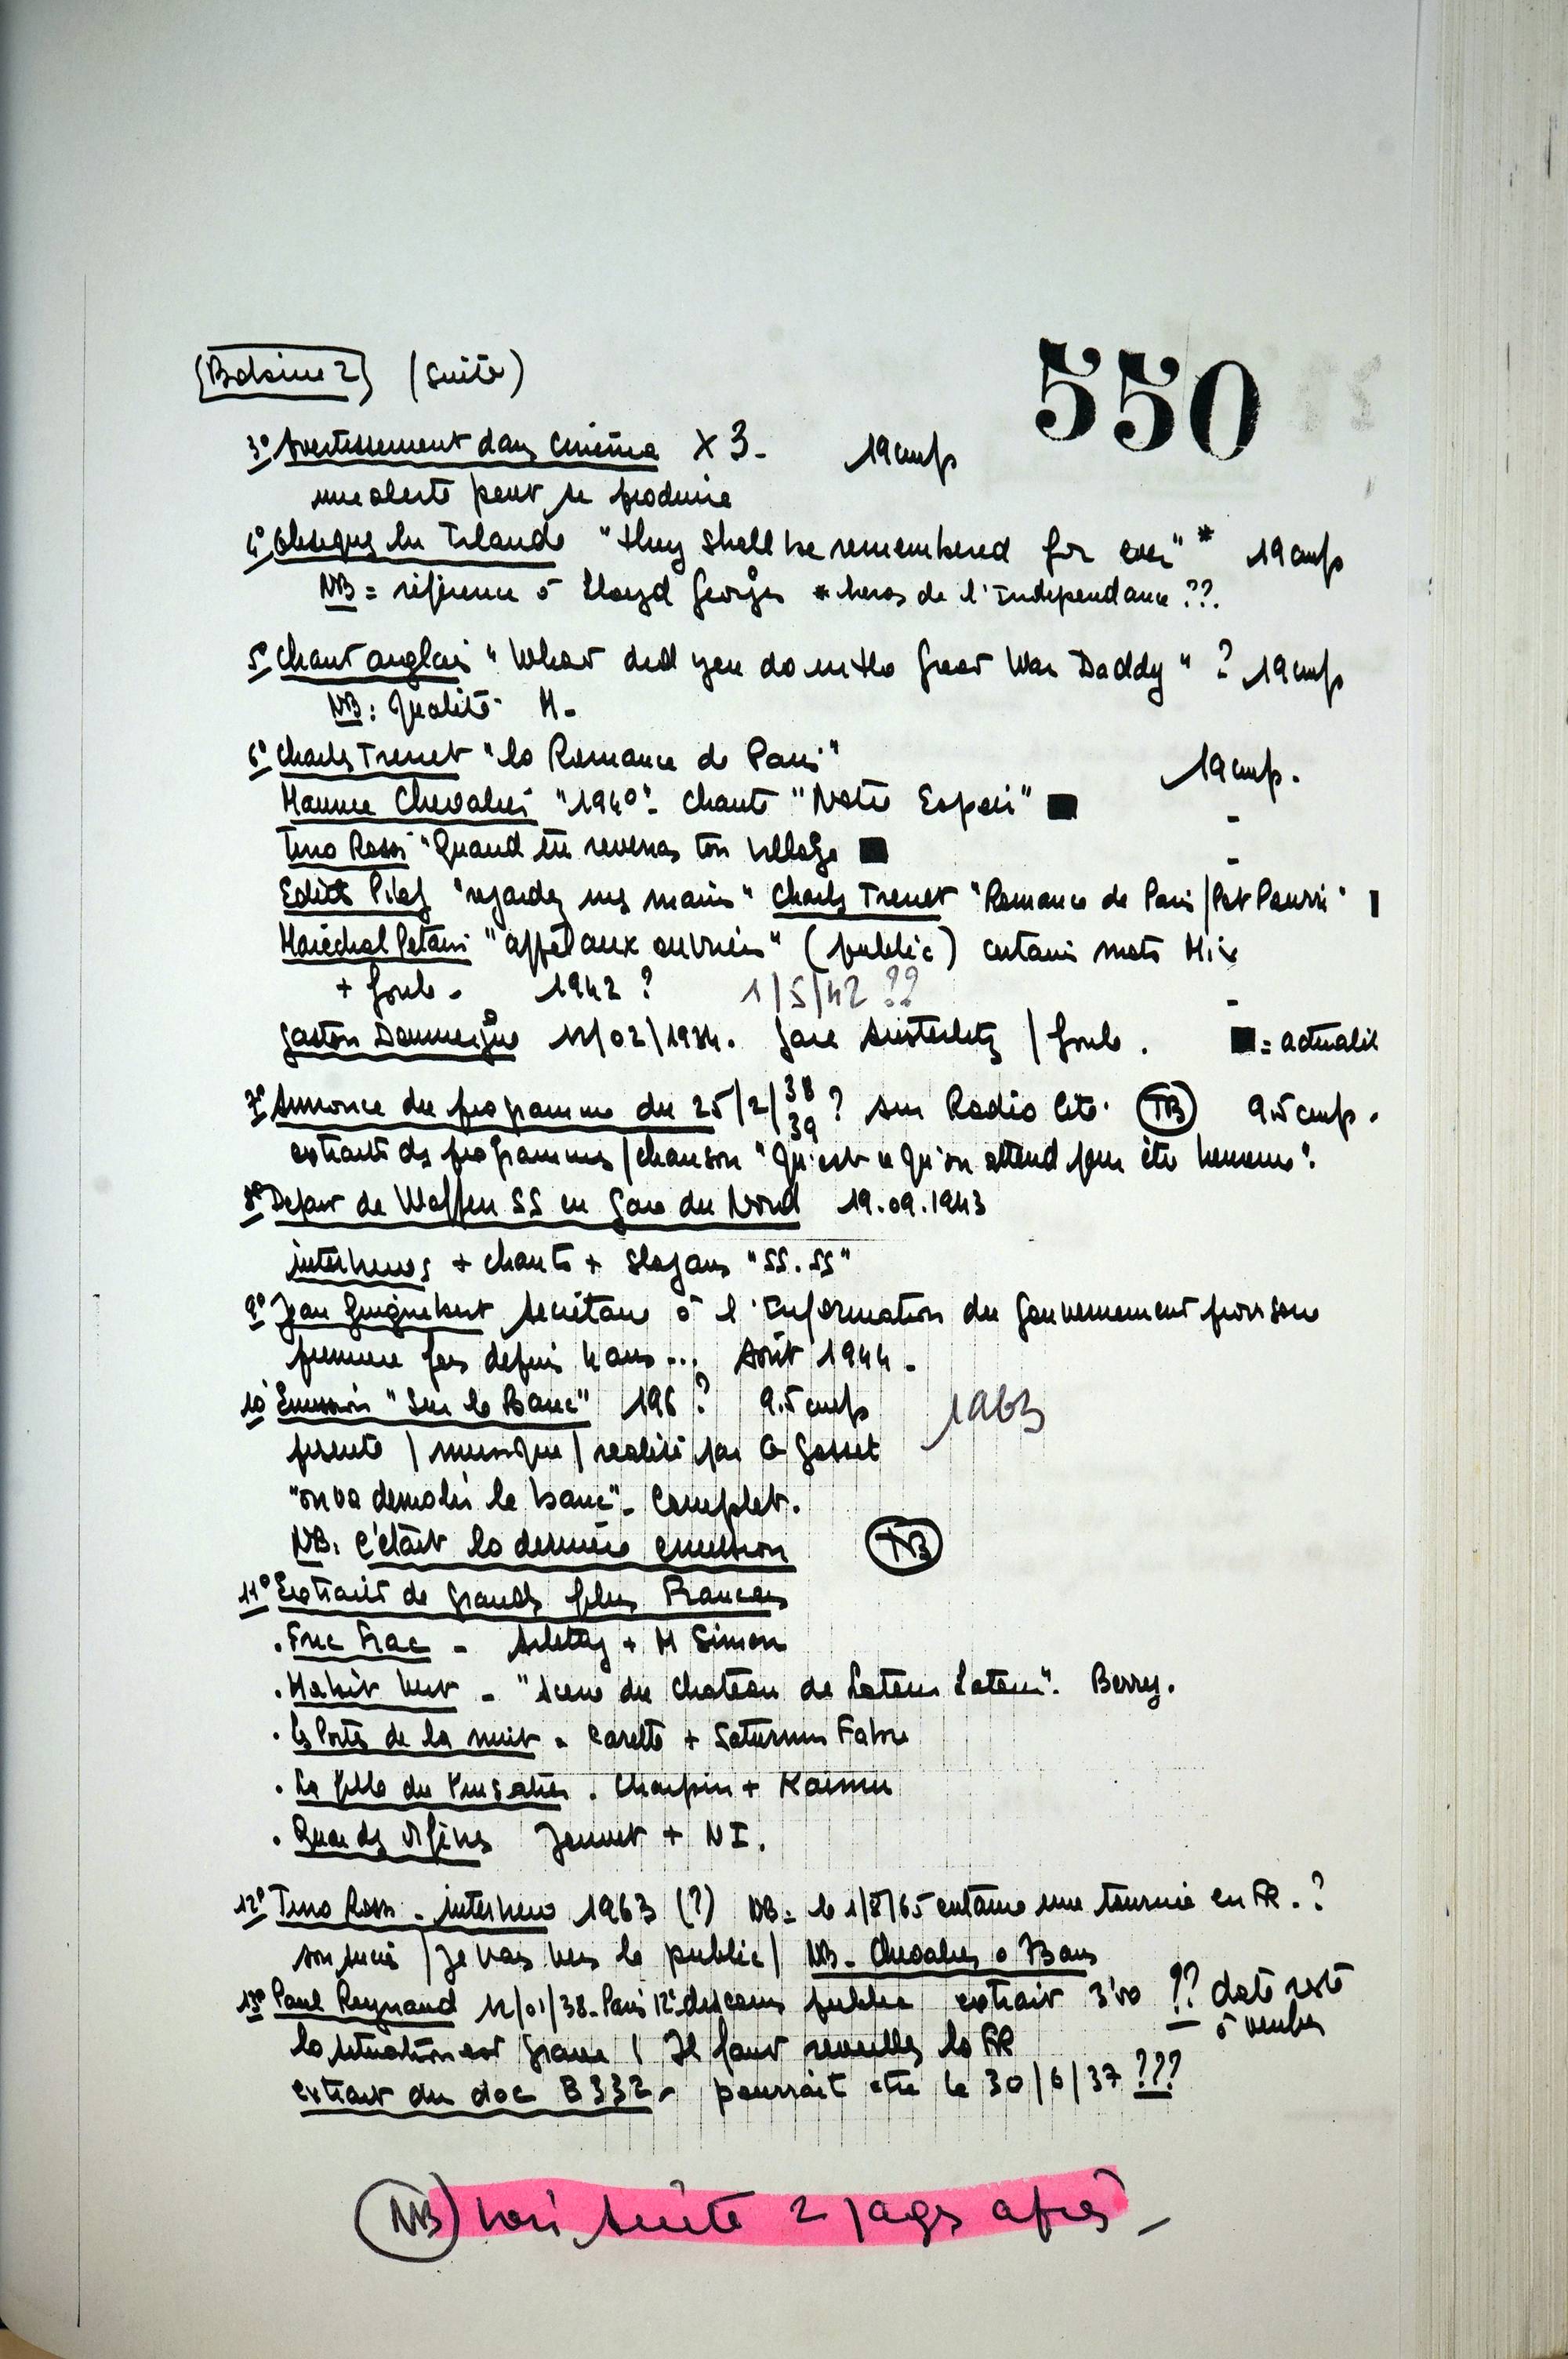 Bobine 2 (suite)
550
3° Avertissement dans cinéma X 3 - 19 cm/s
une alerte peut se produire
4° Obsèques en Irlande "they shall be remembered for ever" * 19 cm/s
NB = référence à Lloyd Georges * heros de l'Independance ??.
5° Chant anglais "What did you do in the Great War Daddy" ? 19 cm/s
NB : Qualité M -
6° Charles Trenet "la Romance de Paris" 19 cm/s.
Maurice Chevalier "1940" - chante "Notre Espoir" ■ -
Tino Rossi "Quand tu reverras ton village ■ -
Edith Piaf "regardez mes mains" Charles Trenet "Romance de Paris / Pot Pourri"
Maréchal Petain "appel aux ouvriers" (public) certains mots Mix
+ foule - 1942 ? 1/5/42 ?? -
Gaston Doumergue 12/02/1934. Gare Austerlitz / foule. ■ = actualit
7° Annonce du programme du 25/2/38 39 ? sur Radio Cité. (TB) 9.5 cm/s.
extraits des programmes / chanson "Qu'est ce qu'on attend pour être heureux".
8° Depart de Waffen SS en Gare du Nord 19.09.1943
interviews + chants + slogans "SS.SS"
9° Jean Guignebert Secrétaire à l'Information du Gouvernement provisoire
première fois depuis 4 ans ... Août 1944 -
10° Emission "Sur le Banc" 196 ? 9.5 cm/s 1963
présenté / musique / réalisé par
"on va demolir le banc" - Complet.
NB : C'était la dernière emission (TB)
11° Extraits de grands films Francais
. Fric Frac - Arletty + M Simon
. Habit vert - "Scene du chateau de Latour Latour". Berry.
. Les Portes de la nuit - Carette + Saturnin Fabre
. La fille du Puisatier . Charpin + Raimu
. Quai des Orfèvres Jouvet + NI.
12° Tino Rossi - interview 1963 (?) NB = le 1/8/65 entame une tournée en FR. ?
son succès / Je vais vers le public / NB - Chevalier a 73 ans
13° Paul Reynaud 12/01/38 - Paris 12e discours public extrait 3'00 ?? date reste
à verifier
la situation est grave / Il faut reveiller la FR
extrait du doc B332 - pourrait être le 30/6/37 ???
(NB) voir suite 2 pages après -